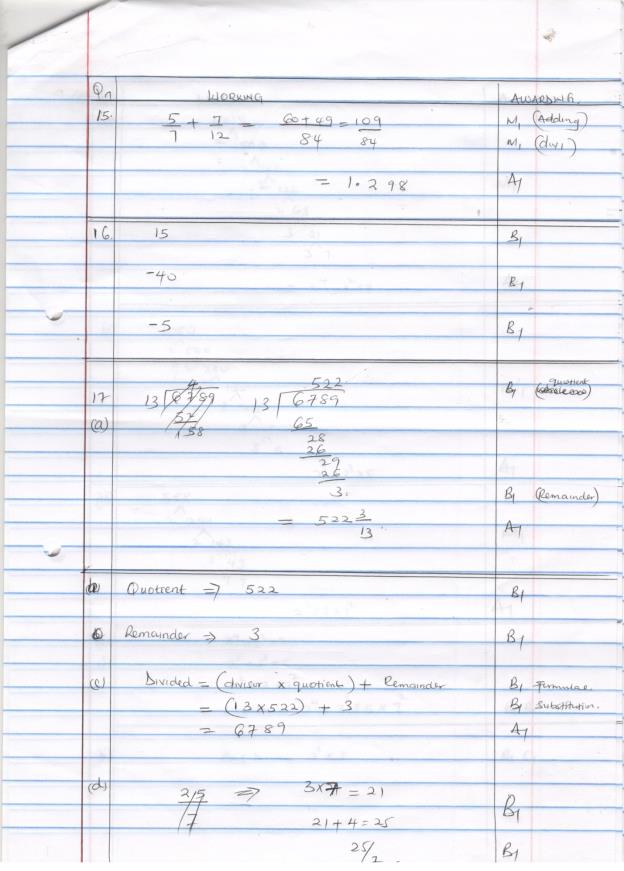 Qn WORKING AWARDING.
15. 5/7 + 7/12 = 60+49/84 = 109/84 M1 (Adding)
M1 (div)
= 1.298 A1
16. 15 B1
-40 B1
-5 B1
17 13 6789 522 B1 quotient
(a) 52 13 6789
158 65
28
26
29
26
3. B1 (Remainder)
= 522 3/13 A1
Quotient ⇒ 522 B1
Remainder ⇒ 3 B1
(c) Divided = (divisor x quotient) + Remainder B1 Formulae.
= (13x522) + 3 B1 Substitution.
= 6789 A1
(d) ⇒ 3x7 = 21 B1
21+4=25
25/ B1